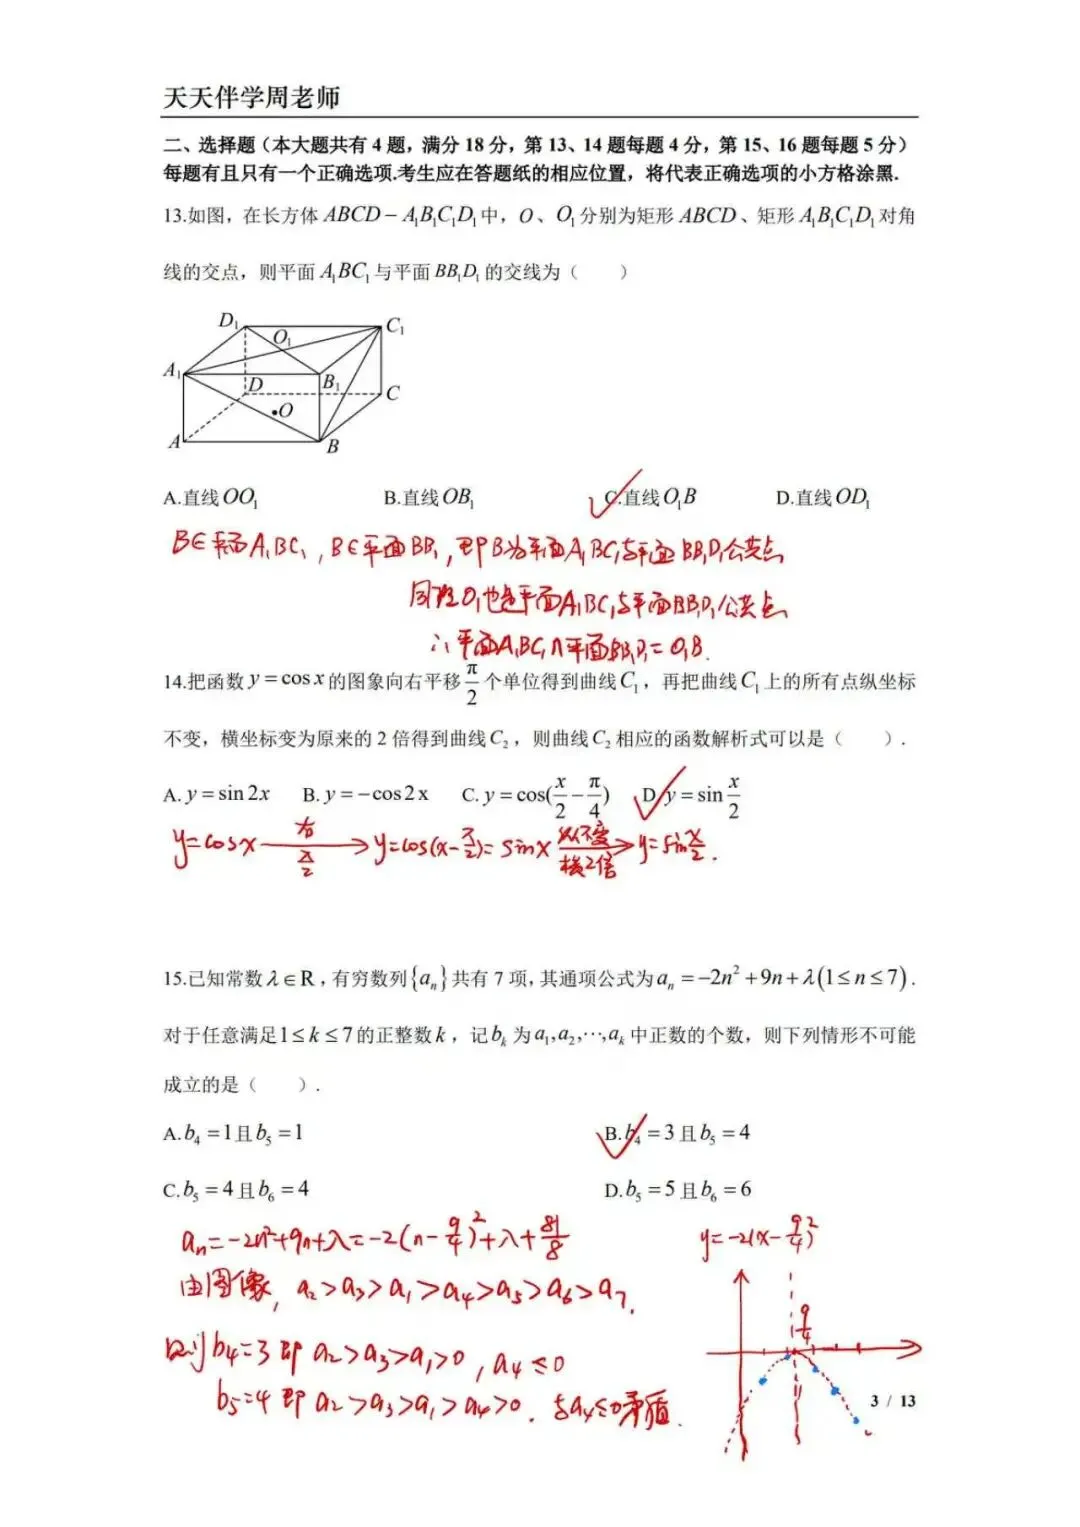 天天伴学周老师
二、选择题（本大题共有 4 题，满分 18 分，第 13、14 题每题 4 分，第 15、16 题每题 5 分）
每题有且只有一个正确选项.考生应在答题纸的相应位置，将代表正确选项的小方格涂黑.
13.如图，在长方体 ABCD − A₁B₁C₁D₁ 中，O、O₁ 分别为矩形 ABCD、矩形 A₁B₁C₁D₁ 对角
线的交点，则平面 A₁BC₁ 与平面 BB₁D₁ 的交线为（　　）
D₁ C₁ O₁
A₁ D B₁ C
O
A B
A.直线 OO₁ B.直线 OB₁ C.直线 O₁B D.直线 OD₁
B∈平面A₁BC₁，B∈平面BB₁，即B为平面A₁BC₁与平面BB₁D₁公共点
同理O₁也是平面A₁BC₁与平面BB₁D₁公共点
∴平面A₁BC₁∩平面BB₁D₁=O₁B.
14.把函数 y = cos x 的图象向右平移 π/2 个单位得到曲线 C₁，再把曲线 C₁ 上的所有点纵坐标
不变，横坐标变为原来的 2 倍得到曲线 C₂，则曲线 C₂ 相应的函数解析式可以是（　　）.
A. y = sin 2x B. y = −cos 2x C. y = cos(x/2 − π/4) D. y = sin x/2
y=cosx 右 π/2 → y=cos(x-π/2)=sinx 纵不变 横2倍 → y=sin x/2.
15.已知常数 λ∈R，有穷数列{aₙ}共有 7 项，其通项公式为 aₙ = −2n² + 9n + λ(1 ≤ n ≤ 7).
对于任意满足 1 ≤ k ≤ 7 的正整数 k，记 bₖ 为 a₁,a₂,⋯,aₖ 中正数的个数，则下列情形不可能
成立的是（　　）.
A. b₄ = 1 且 b₅ = 1 B. b₄ = 3 且 b₅ = 4
C. b₅ = 4 且 b₆ = 4 D. b₅ = 5 且 b₆ = 6
aₙ=-2n²+9n+λ=-2(n-9/4)²+λ+81/8 y=-2(x-9/4)²
由图像，a₂>a₃>a₁>a₄>a₅>a₆>a₇.
9/4
则b₄=3即a₂>a₃>a₁>0，a₄≤0
b₅=4即a₂>a₃>a₁>a₄>0．与a₄≤0矛盾.
3 / 13